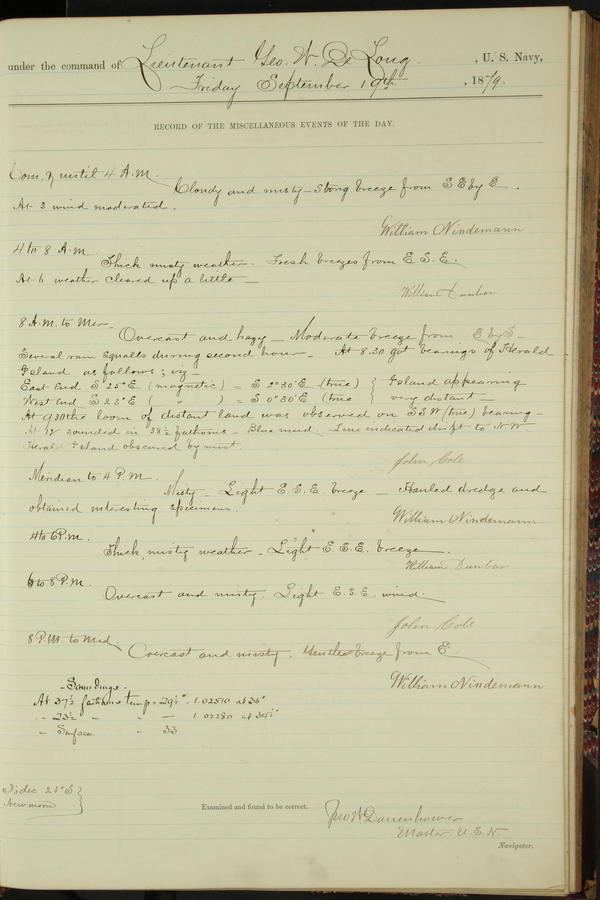 under the command of Lieutenant Geo. W. De Long, U. S. Navy,
Friday September 19th, 1879.
RECORD OF THE MISCELLANEOUS EVENTS OF THE DAY.
Com. & until 4 A.M.
Cloudy and misty - Strong breeze from S E by E.
At 3 wind moderated.
William Nindemann
4 to 8 A.M.
Thick misty weather - Fresh breezes from E.S.E.
At 6 weather cleared up a little -
William Dunbar
8 A.M. to Mer
Overcast and hazy - Moderate breeze from E by S -
Several rain squalls during second hour - At 8.30 got bearings of Herald
Island as follows; viz -
East End S 25° E (magnetic) = S 2° 30' E (true) } Island appearing
West End S 23° E ( " ) = S 0° 30' E (true } very distant -
At 9.30 the loom of distant land was observed on SSW (true) bearing -
At 12 sounded in 38½ fathoms - Blue mud. Line indicated drift to N.W
Herald Island obscured by mist.
John Cole
Meridian to 4 P.M.
Misty - Light E.S.E. breeze - Hauled dredge and
obtained interesting specimens.
William Nindemann
4 to 6 P.M.
Thick, misty weather - Light E.S.E. breeze.
William Dunbar
6 to 8 P.M.
Overcast and misty. Light E.S.E. wind.
John Cole
8 P.M. to Mid.
Overcast and misty. Gentle breeze from E.
William Nindemann
- Soundings -
At 37½ fathoms temp. 29½° - 1.02510 at 35°
" 23½ " " - 1.02280 at 34½°
" Surface " 33
dec 28° S }
New moon }
Examined and found to be correct.
Jno W Danenhower
Master U.S.N.
Navigator.